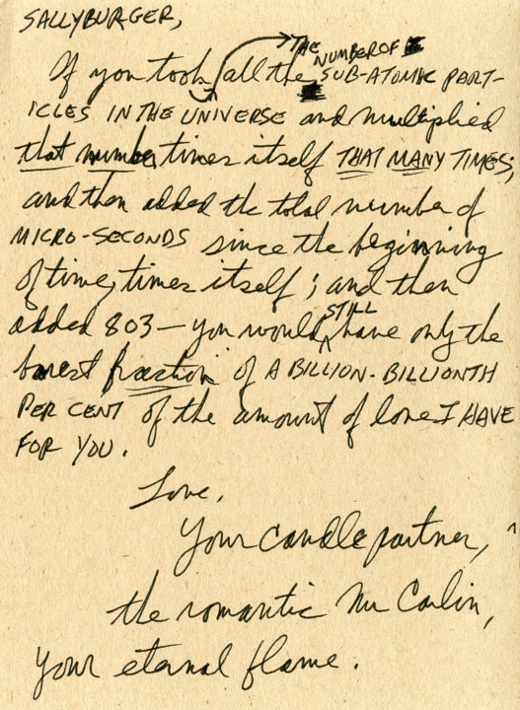 SALLYBURGER,
If you took all the THE NUMBER OF SUB-ATOMIC PART-
ICLES IN THE UNIVERSE and multiplied
that number times itself THAT MANY TIMES;
and then added the total number of
MICRO-SECONDS since the beginning
of time, times itself; and then
added 803 — you would STILL have only the
barest fraction of A BILLION-BILLIONTH
PER CENT of the amount of love I HAVE
FOR YOU.
Love,
Your candle partner,
the romantic Mr Carlin,
your eternal flame.